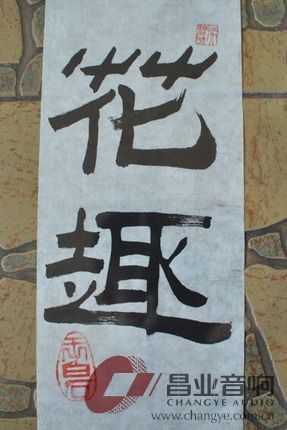 花
趣
昌业音响
CHANGYE AUDIO
www.changye.com.cn